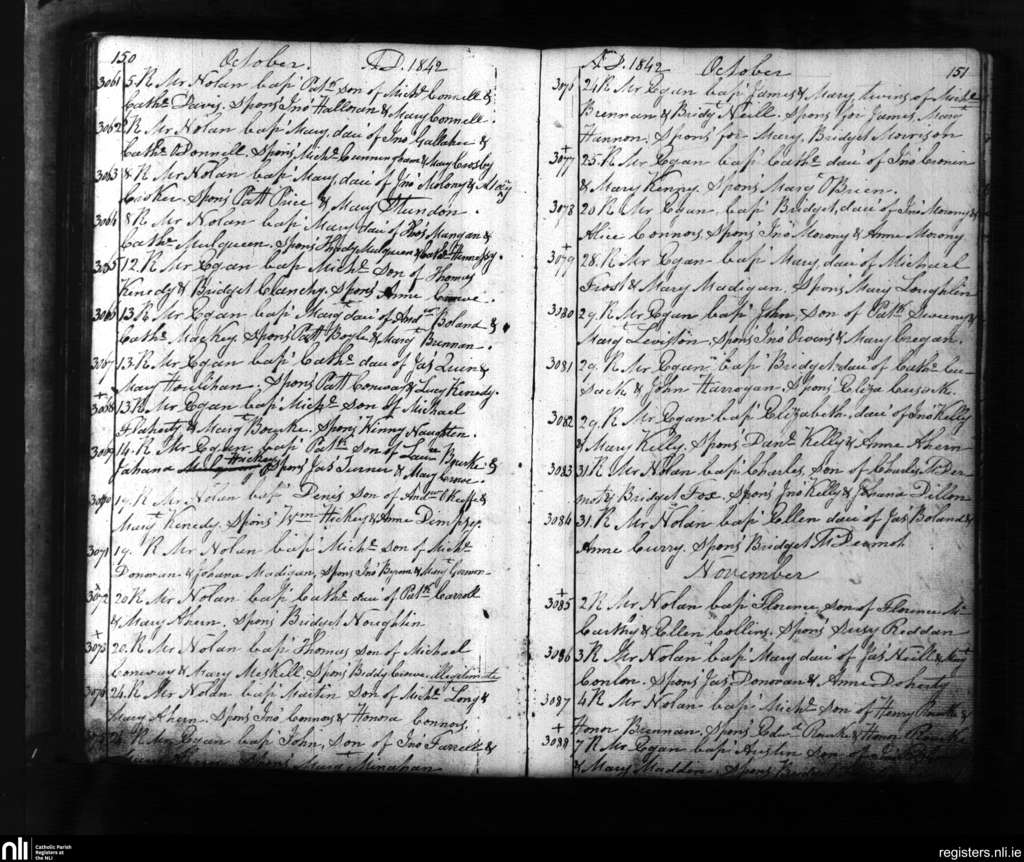 150 October. A.D. 1842
3061 5. R Mr Nolan bap' Patk son of Michl Connell &
Cathe Davis. Spons Jno Halloran & Mary Connell.
3062 R Mr Nolan bap' Mary, dau' of Jno Gallaher &
Cathe O'Donnell. Spons' Michl Cunningham & Mary Crosby
3063 8. R Mr Nolan bap' Mary dau' of Jno Molony &
Spons Patt Price & Mary Stundon.
3064 8 R Mr Nolan bap' Mary dau' of Thos Mungan &
Cathe Mulqueen. Spons Thady Mulqueen & Cathe Hennessy.
3065 12. R Mr Egan bap' Michl son of Thomas
Kenedy & Bridget Clanchy. Spons' Anne Crowe.
3066 13. R Mr Egan bap' Mary dau' of Andw Boland &
Cathe Mackey. Spons Patt Boyle & Margt Brennan.
3067 13. R Mr Egan bap' Cathe dau' of Jas Quin &
Mary Hourihan. Spons Patt Conway & Lucy Kenedy.
+
3068 13. R Mr Egan bap' Michl son of Michael
Flaherty & Mary Bourke. Spons Winny Naughten.
3069 14. R Mr Egan bap' Patk son of Laure Bourke &
Johana Hackey Spons' Jas Turner & Mary Crowe.
3070 19. R Mr Nolan bap' Denis son of Andw O'Keeffe &
Margt Kenedy. Spons' Wm Hickey & Anne Dempsy.
3071 19. R Mr Nolan bap' Michl son of Michl
Donovan & Johana Madigan. Spons Jno Byron & Margt Gorman
+
3072 20 R Mr Nolan bap' Cathe dau' of Patk Carroll
& Mary Ahern. Spons Bridget Noughtin
+
3073 20. R Mr Nolan bap' Thomas son of Michael
Conway & Mary Meskell. Spons' Biddy Crowe. illegitimate
3074 24. R Mr Nolan bap' Martin son of Michl Long &
Mary Ahern. Spons' Jno Connors & Honora Connors.
R Mr Egan bap' John, son of Jno Farrell &
Spons Margt Minahan
A.D. 1842 October 151
3076 24 R Mr Egan bap' James & Mary twins of Michl
Brennan & Bridgt Neill. Spons' for James, Margt
Hannon. Spons' for Mary, Bridget Morrison
+
3077 25. R Mr Egan bap' Cathe dau' of Jno Cronin
& Mary Kenny. Spons' Margt O'Brien.
3078 26 R Mr Egan bap' Bridget, dau' of Jno Morony &
Alice Connors. Spons Jno Morony & Anne Morony
+
3079 28. R Mr Egan bap' Mary dau' of Michael
Frost & Mary Madigan. Spons Mary Loughlin
3080 29. R Mr Egan bap' John, son of Patk Sweeny &
Margt Leviston. Spons Jno Owens & Mary Creagan.
3081 29. R Mr Egan bap' Bridget dau' of Cathe Cu-
sack & John Harrogan. Spons' Eliza Cusack.
3082 29. R Mr Egan bap' Elizabeth, dau' of Jno Kelly
& Mary Kelly. Spons' Danl Kelly & Anne Ahern
3083 31 R Mr Nolan bap' Charles, son of Charles McDer
mott & Bridget Fox. Spons' Jno Kelly & Johana Dillon
3084 31. R Mr Nolan bap' Ellen dau' of Jas Boland &
Anne Curry. Spons' Bridget McDermott
November
+
3085 2 R Mr Nolan bap' Florence, son of Florence Mc
Carthy & Ellen Collins. Spons' Susy Reddan
3086 3 R Mr Nolan bap' Mary dau' of Jas Neill & Margt
Conlon. Spons' Jas Donovan & Anne Doherty
3087 4 R Mr Nolan bap' Michl son of Henry Rourke &
Honor Brennan. Spons' Edw Rourke & Honor Rourke
+
3088 7 R Mr Egan bap' Austin son of
& Mary Madden. Spons'
nli Catholic Parish
Registers at
the NLI
registers.nli.ie